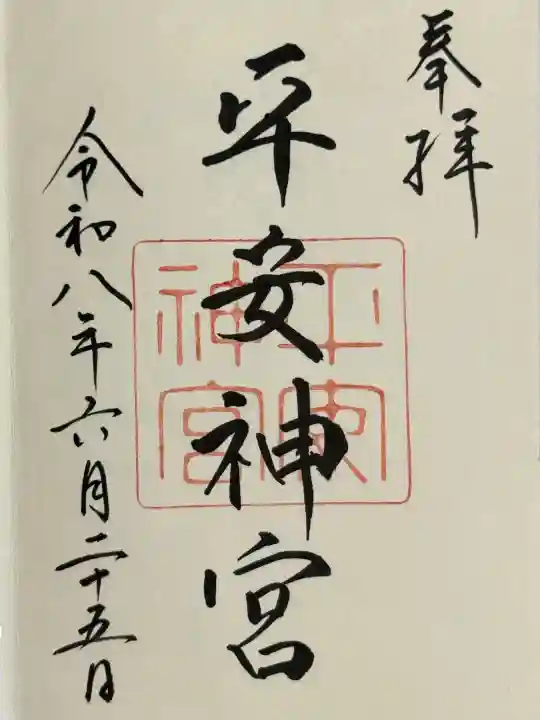 奉拝
平安神宮
平安神宮
令和八年六月二十五日